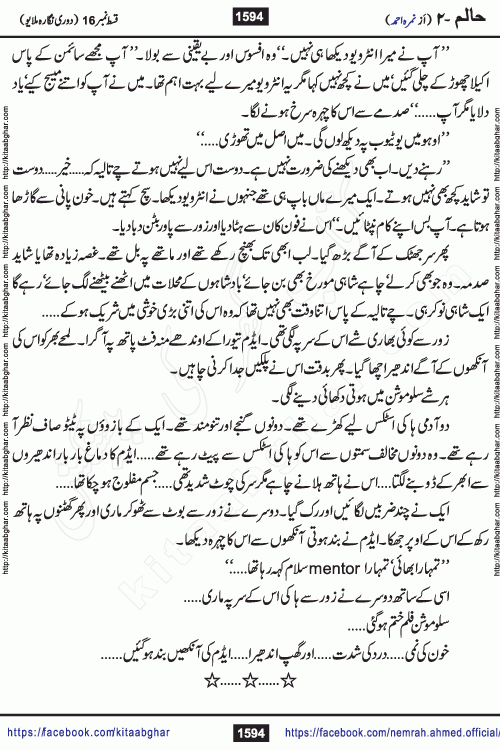 حالم -۲ (از نمرہ احمد) 1594 قسط نمبر 16 (دوری نگارہ ملایو)
’’آپ نے میرا انٹرویو دیکھا ہی نہیں۔‘‘ وہ افسوس اور بے یقینی سے بولا۔ ’’آپ مجھے سائمن کے پاس
اکیلا چھوڑ کے چلی گئیں‘ میں نے کچھ نہیں کہا مگر یہ انٹرویو میرے لیے بہت اہم تھا۔ میں نے آپ کو اتنے میسج کیے‘ یاد
دلایا مگر آپ......‘‘ صدمے سے اس کا چہرہ سرخ ہونے لگا۔
’’اوہو میں یوٹیوب پہ دیکھ لوں گی۔ میں اصل میں تھوڑی......‘‘
’’رہنے دیں۔ اب بھی دیکھنے کی ضرورت نہیں ہے۔ دوست اس لیے نہیں ہوتے ہے تالیہ کہ.....خیر.....دوست
تو شاید کچھ بھی نہیں ہوتے۔ ایک میرے ماں باپ ہی تھے جنہوں نے انٹرویو دیکھا۔ سچ کہتے ہیں۔ خون پانی سے گاڑھا
ہوتا ہے۔ آپ بس اپنے کام نپٹائیں۔‘‘ اس نے فون کان سے ہٹا دیا اور زور سے پاور بٹن دبا دیا۔
پھر سر جھٹک کے آگے بڑھ گیا۔ لب ابھی تک بھینچ رکھے تھے اور ماتھے پہ بل تھے۔ غصہ زیادہ تھا یا شاید
صدمہ۔ وہ جو بھی کرلے‘ چاہے شاہی مورخ بھی بن جائے‘ بادشاہوں کے محلات میں اٹھنے بیٹھنے لگ جائے‘ رہے گا
ایک شاہی نوکر ہی۔ ہے تالیہ کے پاس اتنا وقت بھی نہیں تھا کہ وہ اس کی اتنی بڑی خوشی میں شریک ہو کے.....
زور سے کوئی بھاری شے اس کے سر پہ لگی تھی۔ ایڈم تیورا کے اوندھے منہ فٹ پاتھ پہ آ گرا۔ لمحے بھر کو اس کی
آنکھوں کے آگے اندھیرا چھا گیا۔ پھر بدقت اس نے پلکیں جدا کرنی چاہیں۔
ہر شے سلوموشن میں ہوتی دکھائی دینے لگی۔
دو آدمی ہاکی اسٹکس لیے کھڑے تھے۔ دونوں گنجے اور تنومند تھے۔ ایک کے بازوؤں پہ ٹیٹو صاف نظر آ
رہے تھے۔ وہ دونوں مخالف سمتوں سے اس کو ہاکی اسٹکس سے پیٹ رہے تھے.....ایڈم کا دماغ بار بار اندھیروں
سے ابھر کے ڈوبنے لگتا....اس نے ہاتھ ہلانے چاہے مگر سر کی چوٹ شدید تھی.....جسم مفلوج ہو چکا تھا.....
ایک نے چند ضربیں لگائیں اور رک گیا۔ دوسرے نے زور سے بوٹ سے ٹھوکر ماری اور پھر گھٹنوں پہ ہاتھ
رکھ کے اس کے اوپر جھکا۔ ایڈم نے بند ہوتی آنکھوں سے اس کا چہرہ دیکھا۔
’’تمہارا بھائی‘ تمہارا mentor سلام کہہ رہا تھا.....‘‘
اسی کے ساتھ دوسرے نے زور سے ہاکی اس کے سر پہ ماری.....
سلوموشن فلم ختم ہو گئی.....
خون کی نمی.....درد کی شدت.....اور گھپ اندھیرا.....ایڈم کی آنکھیں بند ہو گئیں......
☆......☆......☆
https://facebook.com/kitaabghar 1594 https://facebook.com/nemrah.ahmed.official/
http://kitaabghar.com http://kitaabghar.com http://kitaabghar.com http://kitaabghar.com